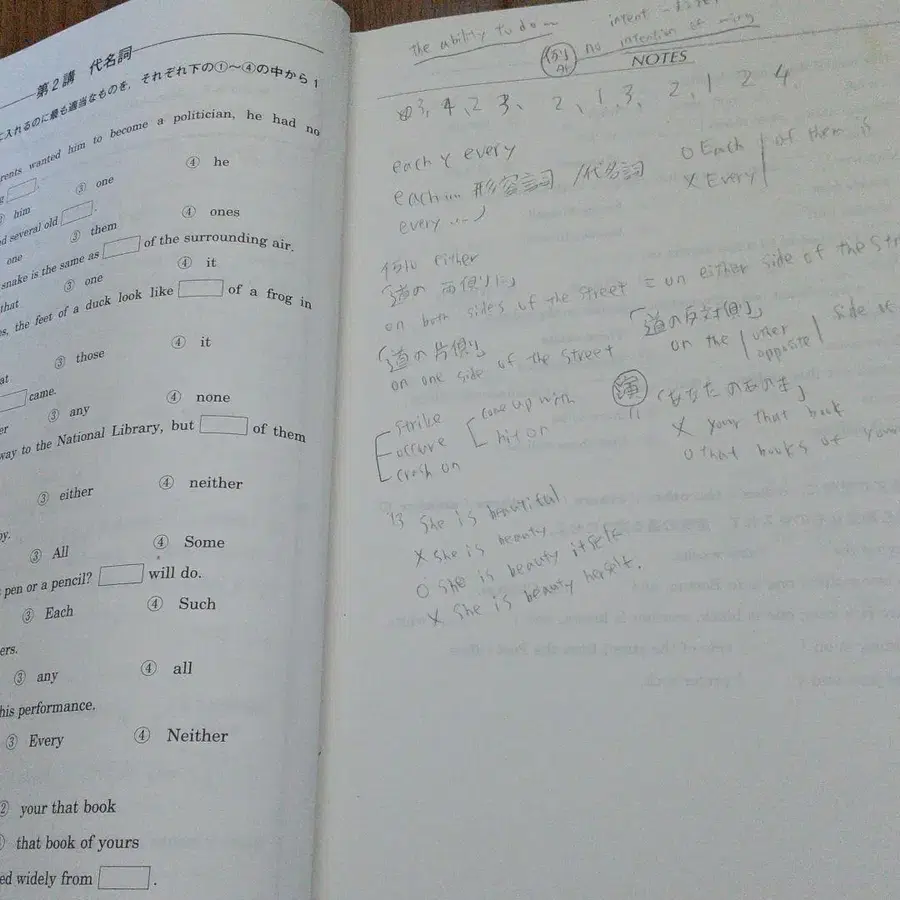 第2講 代名詞
に入れるのに最も適当なものを，それぞれ下の①～④の中から1
rents wanted him to become a politician, he had no
him ③ one ④ he
d several old
one ③ them ④ ones
snake is the same as of the surrounding air.
that ③ one ④ it
s, the feet of a duck look like of a frog in
at ③ those ④ it
came.
er ③ any ④ none
way to the National Library, but of them
③ either ④ neither
oy.
③ All ④ Some
pen or a pencil? will do.
③ Each ④ Such
ers.
③ any ④ all
his performance.
③ Every ④ Neither
② your that book
that book of yours
ed widely from .
the ability to do
intent
no intention of ming
NOTES
3, 4, 2 3、 2、1 3、 2、1 2 4
each y every
each 形容詞 /代名詞
every
○ Each of them is
× Every
either
「道の両側に」
on both sides of the street = on either side of the str
「道の片側」
on one side of the street
「道の反対側」
on the other opposite side of
strike
occure
crash on
come up with
hit on
演 11 「あなたのあの本」
× your that book
○ that books of your
13 She is beautiful
× She is beauty
○ She is beauty itself
× She is beauty herself.